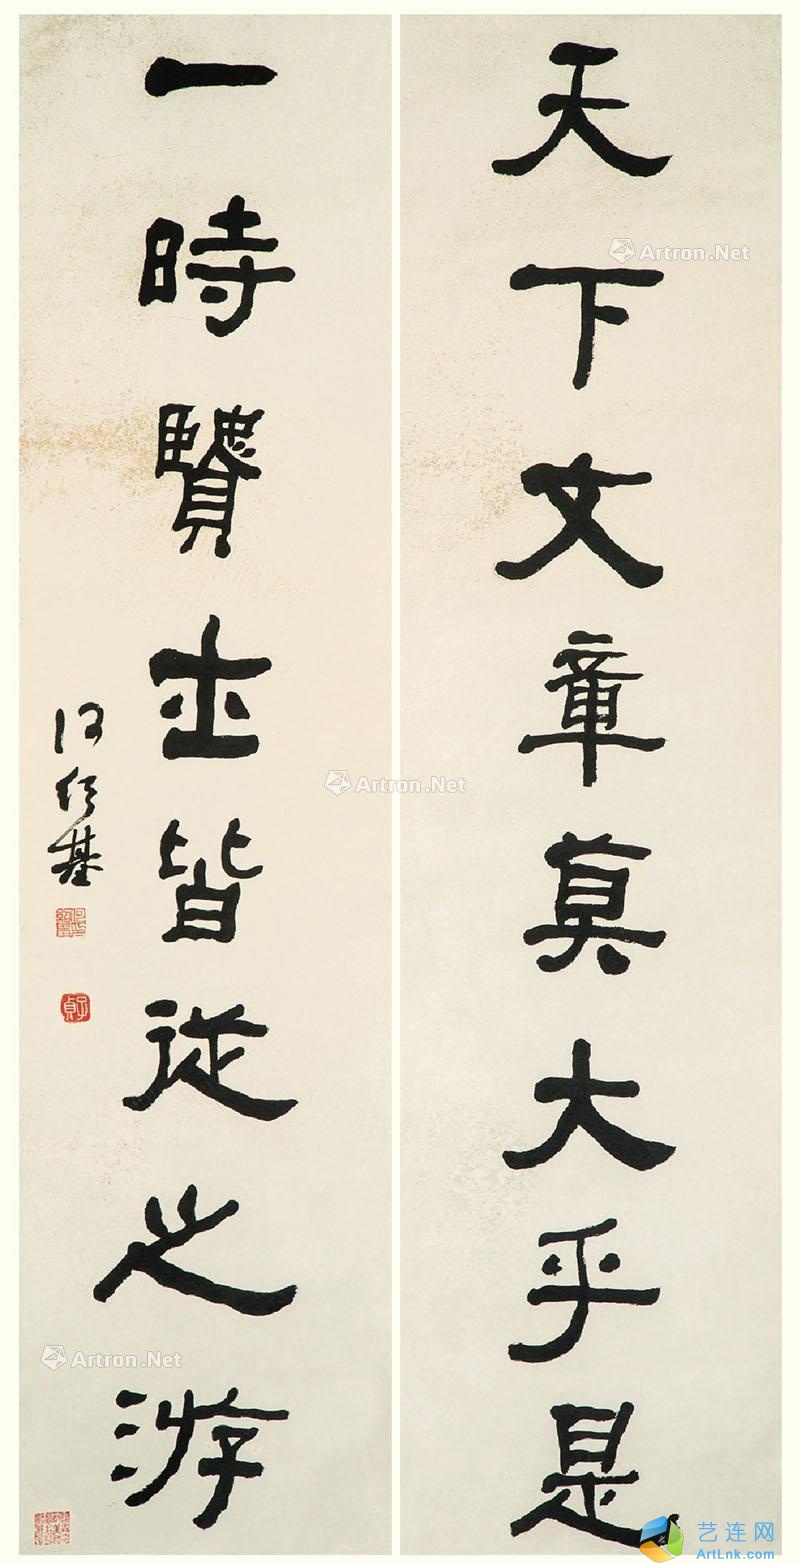 天下文章莫大乎是
一時贒士皆從之游
何紹基
何紹基印
子貞
Artron.Net
Artron.Net
Artron.Net
艺连网
ArtLnk.com